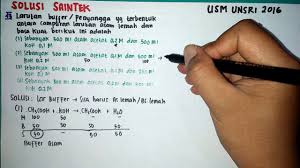 SOLUSI SAINTEK
USM UNSRI 2016
Larutan buffer / Penyangga yg terbentuk
antara campuran larutan asam lemah dan
basa kuat berikut ini adalah
Sebanyak 500 ml asam asetat 0,2 M dan 500 ml
KOH 0,1 M
Sebanyak 500 ml asam asetat 0,1 M dan 500 ml
KOH
Sebanyak 500 ml asam asetat 0,1 M dan
KOH 0,1 M
Sebanyak 500 ml asam asetat
KOH 0,2 M
SOLUSI : Lar Buffer → Sisa harus As lemah / Bs lemah
(1) CH3COOH + KOH → CH3COOK + H2O
M 100 50 - -
B 50 50 50 50
S 50 - 50 50
Buffer Asam